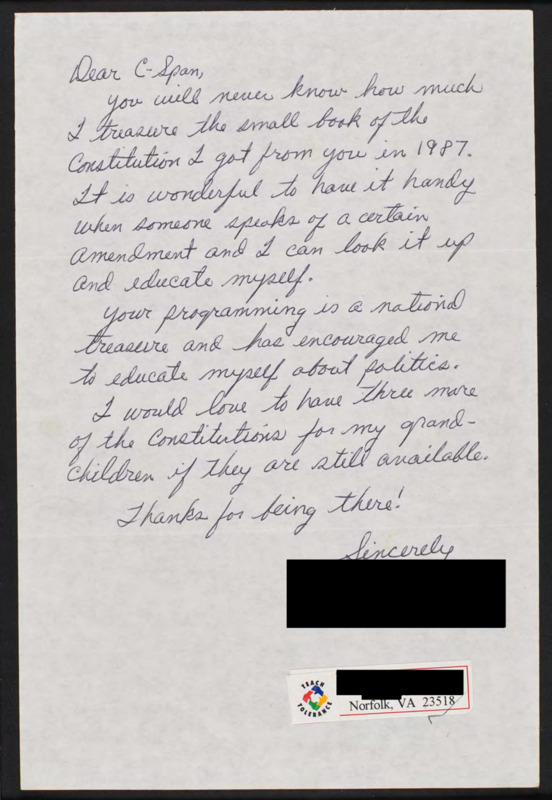 Dear C-Span,
You will never know how much
I treasure the small book of the
Constitution I got from you in 1987.
It is wonderful to have it handy
when someone speaks of a certain
amendment and I can look it up
and educate myself.
Your programming is a national
treasure and has encouraged me
to educate myself about politics.
I would love to have three more
of the Constitutions for my grand-
children if they are still available.
Thanks for being there!
Sincerely
TEACH
TOLERANCE
Norfolk, VA 23518